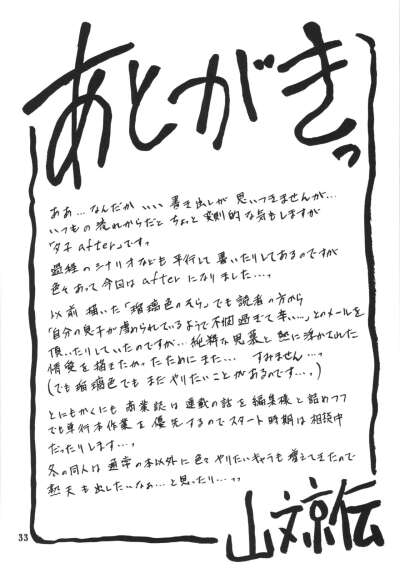 あとがきっ
ああ…なんだか いい 書き出しが 思いつきませんが…
いつもの 流れからだと ちょっと 変則的な気もしますが
「タチ after」です。
過程の シナリオなども 平行して 書いたりしてあるのですが
色々あって 今回は after に なりました…。
以前 描いた「瑠璃色のそら」でも 読者の方から
「自分の息子が 虐められているようで 不憫過ぎて 辛い…」とのメールを
頂いたりしていたのですが… 純粋な 思慕と 熱に 浮かされた
情愛を 描きたかったために また… すみません…。
(でも 瑠璃色でも まだ やりたいことが あるのです…。)
とにもかくにも 商業誌は 連載の話を 編集様と 詰めつつ
でも 単行本作業を 優先するので スタート時期は 相談中
だったりします…。
冬の同人は 通常の本以外に 色々 やりたいキャラも 増えてきたので
熱天も 出したいなぁ…と 思ったり…っ
山文京伝
33